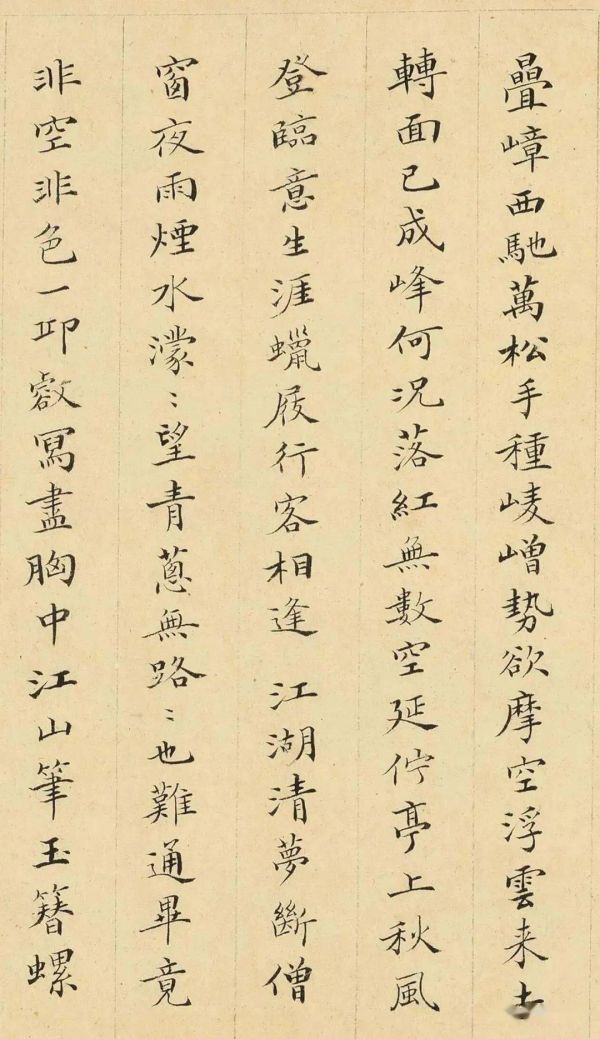 疊嶂西馳萬松手種崚嶒勢欲摩空浮雲来去
轉面已成峰何況落紅無數空延佇亭上秋風
登臨意生涯蠟屐行客相逢江湖清夢斷僧
窗夜雨煙水濛〻望青蔥無路〻也難通畢竟
非空非色一邛叡冩盡胸中江山筆玉簪螺